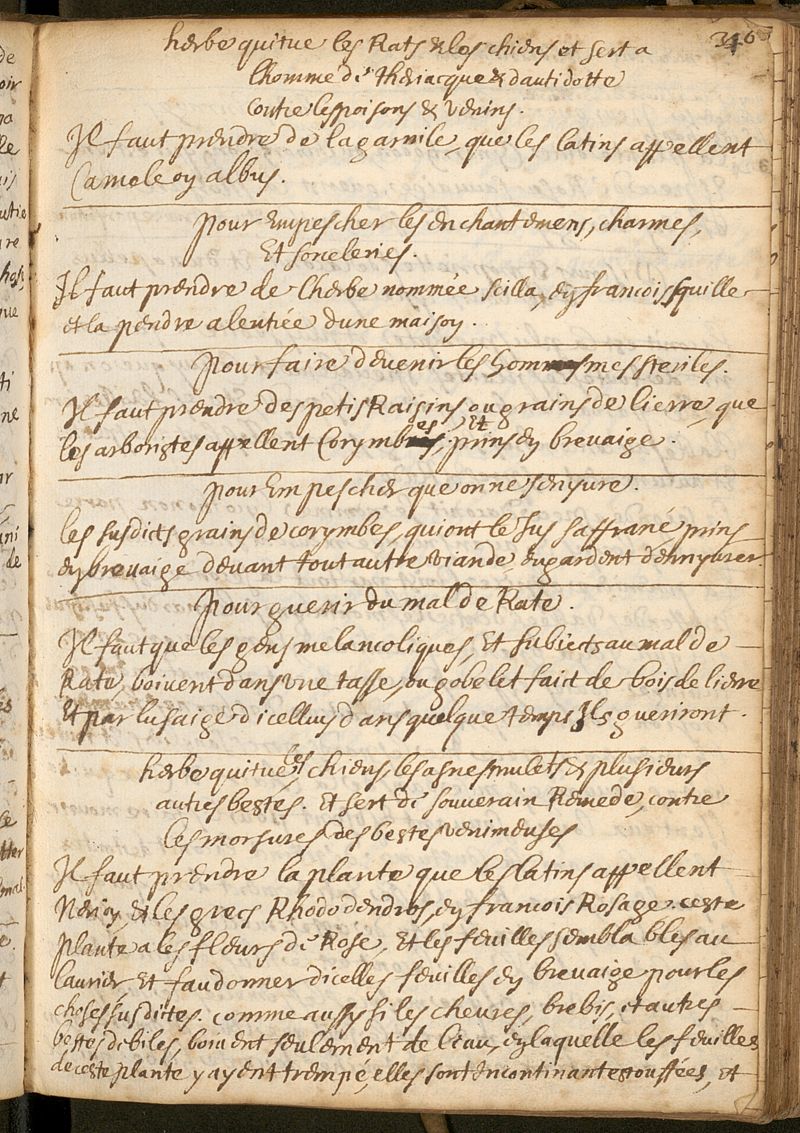 346
herbe qui tue les Rats & les chiens et sert a
lhomme de theriacque & dautidotte
contre les poisons & venins.
Il faut prendre de la garnile, que les latins appellent
Cameleoy albus.
pour Empescher les enchantemens, charmes,
Et sorceleries.
Il faut prendre de lherbe nommée scilla, ey francois squille
et la pendre a lentrée dune maisoy.
pour faire devenir les hommes steriles.
Il faut prendre des petis Raisins ou grains de lierre, que
les arboristes appellent Corymbes, Et prins ey brevaige.
pour Empescher que on ne senyure.
les susdicts grains de corymbes, qui ont le Jus saffrané prins
ey brevaige devant tout autre viande, engardent dennyurer.
pour guerir du mal de Rate.
Il faut que les gens melancoliques, Et subiects au mal de
Rate, boivent dans une tasse, ou gobelet faict de bois de lierre
Et par lusaige dicelluy dans quelque temps Ils gueriront.
herbe qui tue les chiens, les asnes mulets & plusieurs
autres bestes. Et sert de souverain Remede, contre
les morsures des bestes venimeuses
Il faut prendre la plante que les latins appellent
Nerioy, & les grecs Rhododendros, ey francois Rosage. ceste
plante a les fleurs de Rose, Et les feuilles semblables au
laurier Et faut donner dicelles feuilles ey brevaige pour les
choses susdittes. comme aussy si les cheures, brebis, et autres
bestes debiles, boivent seulement de leau, ey laquelle les feuilles
de ceste plante y ayent trempé, elles sont Incontinant estouffées, et